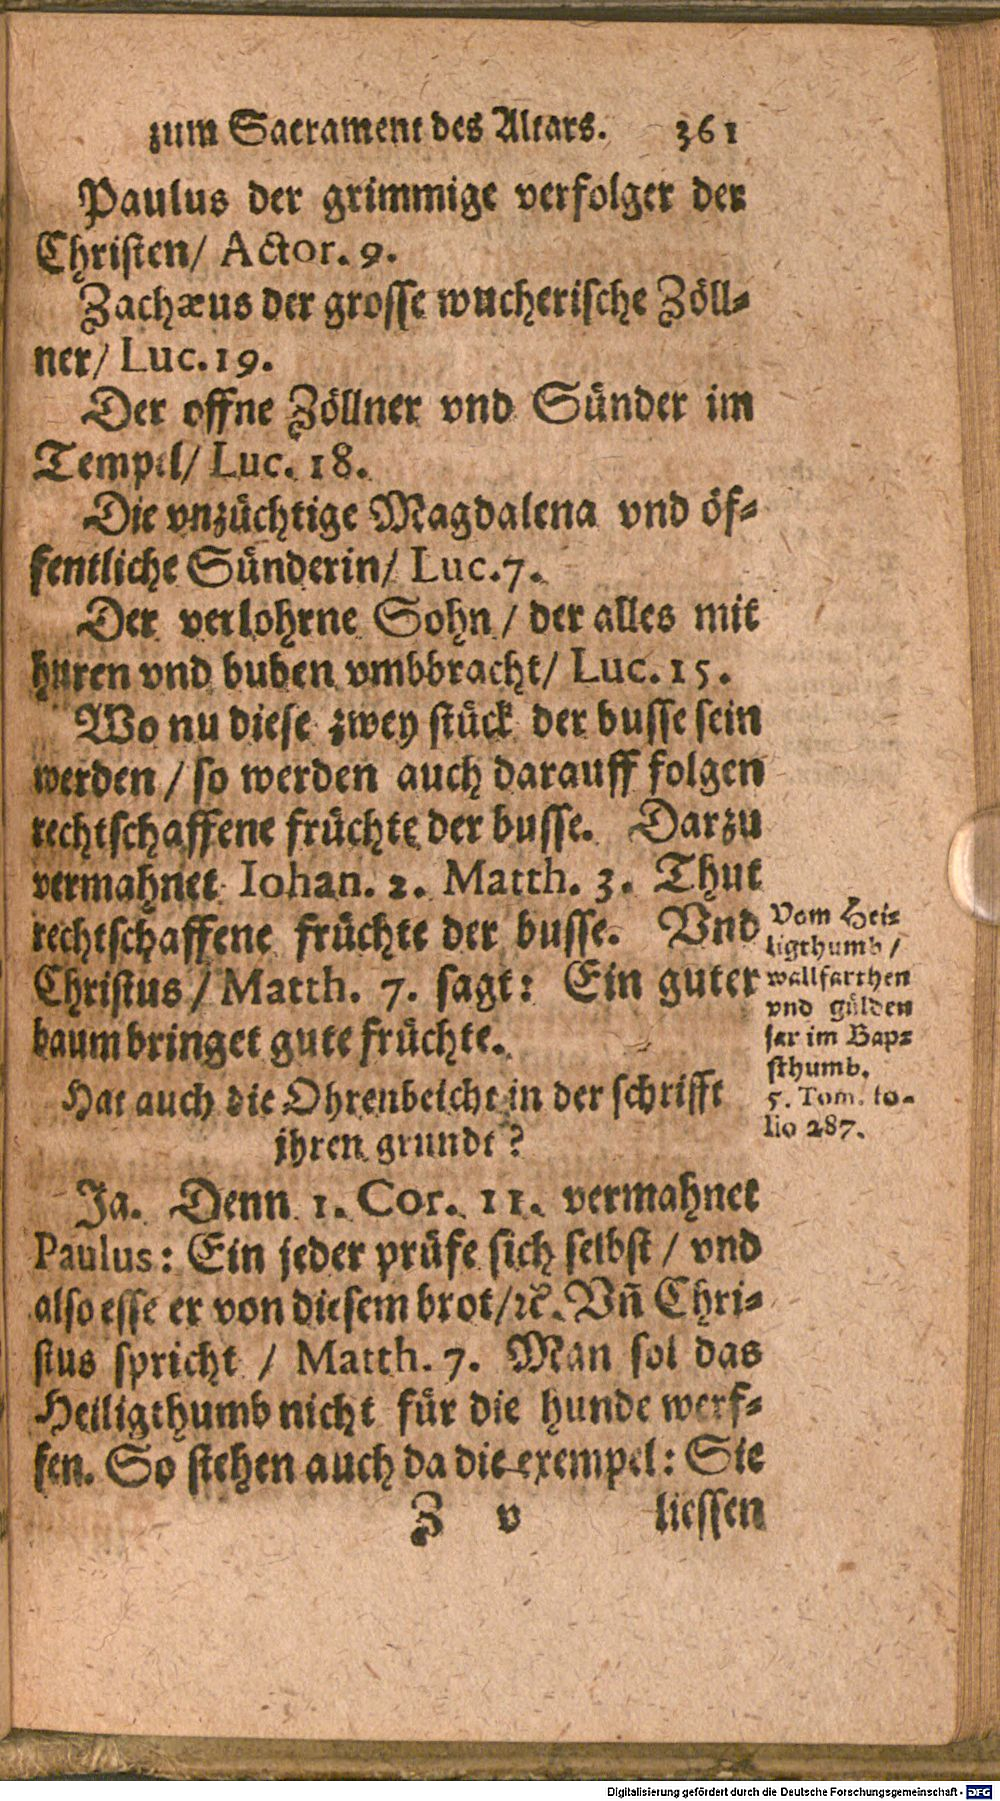 zum Sacrament des Altars. 361
Paulus der grimmige verfolger der
Christen/ Actor. 9.
Zachæus der grosse wucherische Zöll-
ner/ Luc. 19.
Der offne Zöllner vnd Sünder im
Tempel/ Luc. 18.
Die vnzüchtige Magdalena vnd öf-
fentliche Sünderin/ Luc. 7.
Der verlohrne Sohn / der alles mit
huren vnd buben vmbbracht/ Luc. 15.
Wo nu diese zwey stück der busse sein
werden / so werden auch darauff folgen
rechtschaffene früchte der busse. Darzu
vermahnet Iohan. 2. Matth. 3. Thut
rechtschaffene früchte der busse. Vnd
Christus / Matth. 7. sagt: Ein guter
baum bringet gute früchte.
Vom Hei-
ligthumb /
wallfarthen
vnd gülden
jar im Bap-
sthumb.
5. Tom. fo-
lio 287.
Hat auch die Ohrenbeicht in der schrifft
jhren grundt?
Ja. Denn 1. Cor. 11. vermahnet
Paulus: Ein jeder prüfe sich selbst / vnd
also esse er von diesem brot/ꝛc. Vñ Chri-
stus spricht / Matth. 7. Man sol das
Heiligthumb nicht für die hunde werf-
fen. So stehen auch da die exempel: Sie
Z v liessen
Digitalisierung gefördert durch die Deutsche Forschungsgemeinschaft - DFG